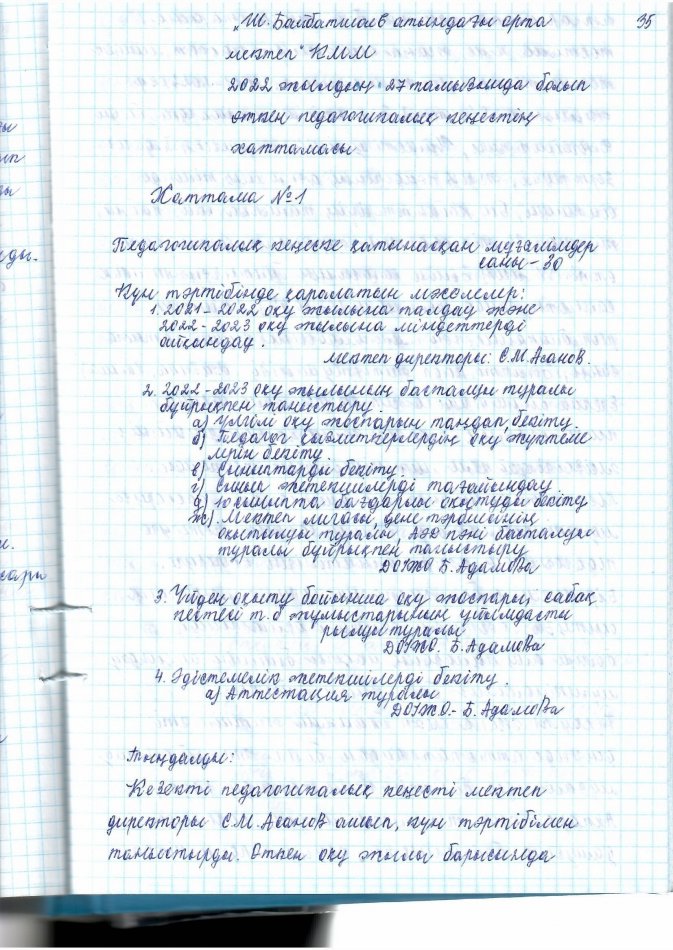 35
„Ш. Байбатшаев атындағы орта
мектеп" КММ
2022 жылдың 27 тамызында болып
өткен педагогикалық кеңестің
хаттамасы
Хаттама №1
Педагогикалық кеңеске қатынасқан мұғалімдер
саны - 30
Күн тәртібінде қаралатын мәселелер:
1. 2021-2022 оқу жылына талдау және
2022-2023 оқу жылына міндеттерді
айқындау.
мектеп директоры: С.М.Асанов.
2. 2022-2023 оқу жылының басталуы туралы
бұйрықпен таныстыру.
а) Үлгілі оқу жоспарын таңдап, бекіту.
б) Педагог қызметкерлердің оқу жүктеме
лерін бекіту.
в) Сыныптарды бекіту.
г) Сынып жетекшілерді тағайындау
д) 10 сыныпта бағдарлы оқытуды бекіту
ж). Мектеп лигасы, дене тәрбиесінің
оқытылуы туралы, АӘД пәні басталуы
туралы бұйрықпен таныстыру
ДОІЖО Б. Адамова
3. Үйден оқыту бойынша оқу жоспары, сабақ
кестесі т.б жұмыстарының ұйымдасты
рылуы туралы
ДОІЖО. Б. Адамова
4. Әдістемелік жетекшілерді бекіту.
а) Аттестация туралы
ДОІЖО.- Б. Адамова
Тыңдалды:
Кезекті педагогикалық кеңесті мектеп
директоры С.М.Асанов ашып, күн тәртібімен
таныстырды. Өткен оқу жылы барысында